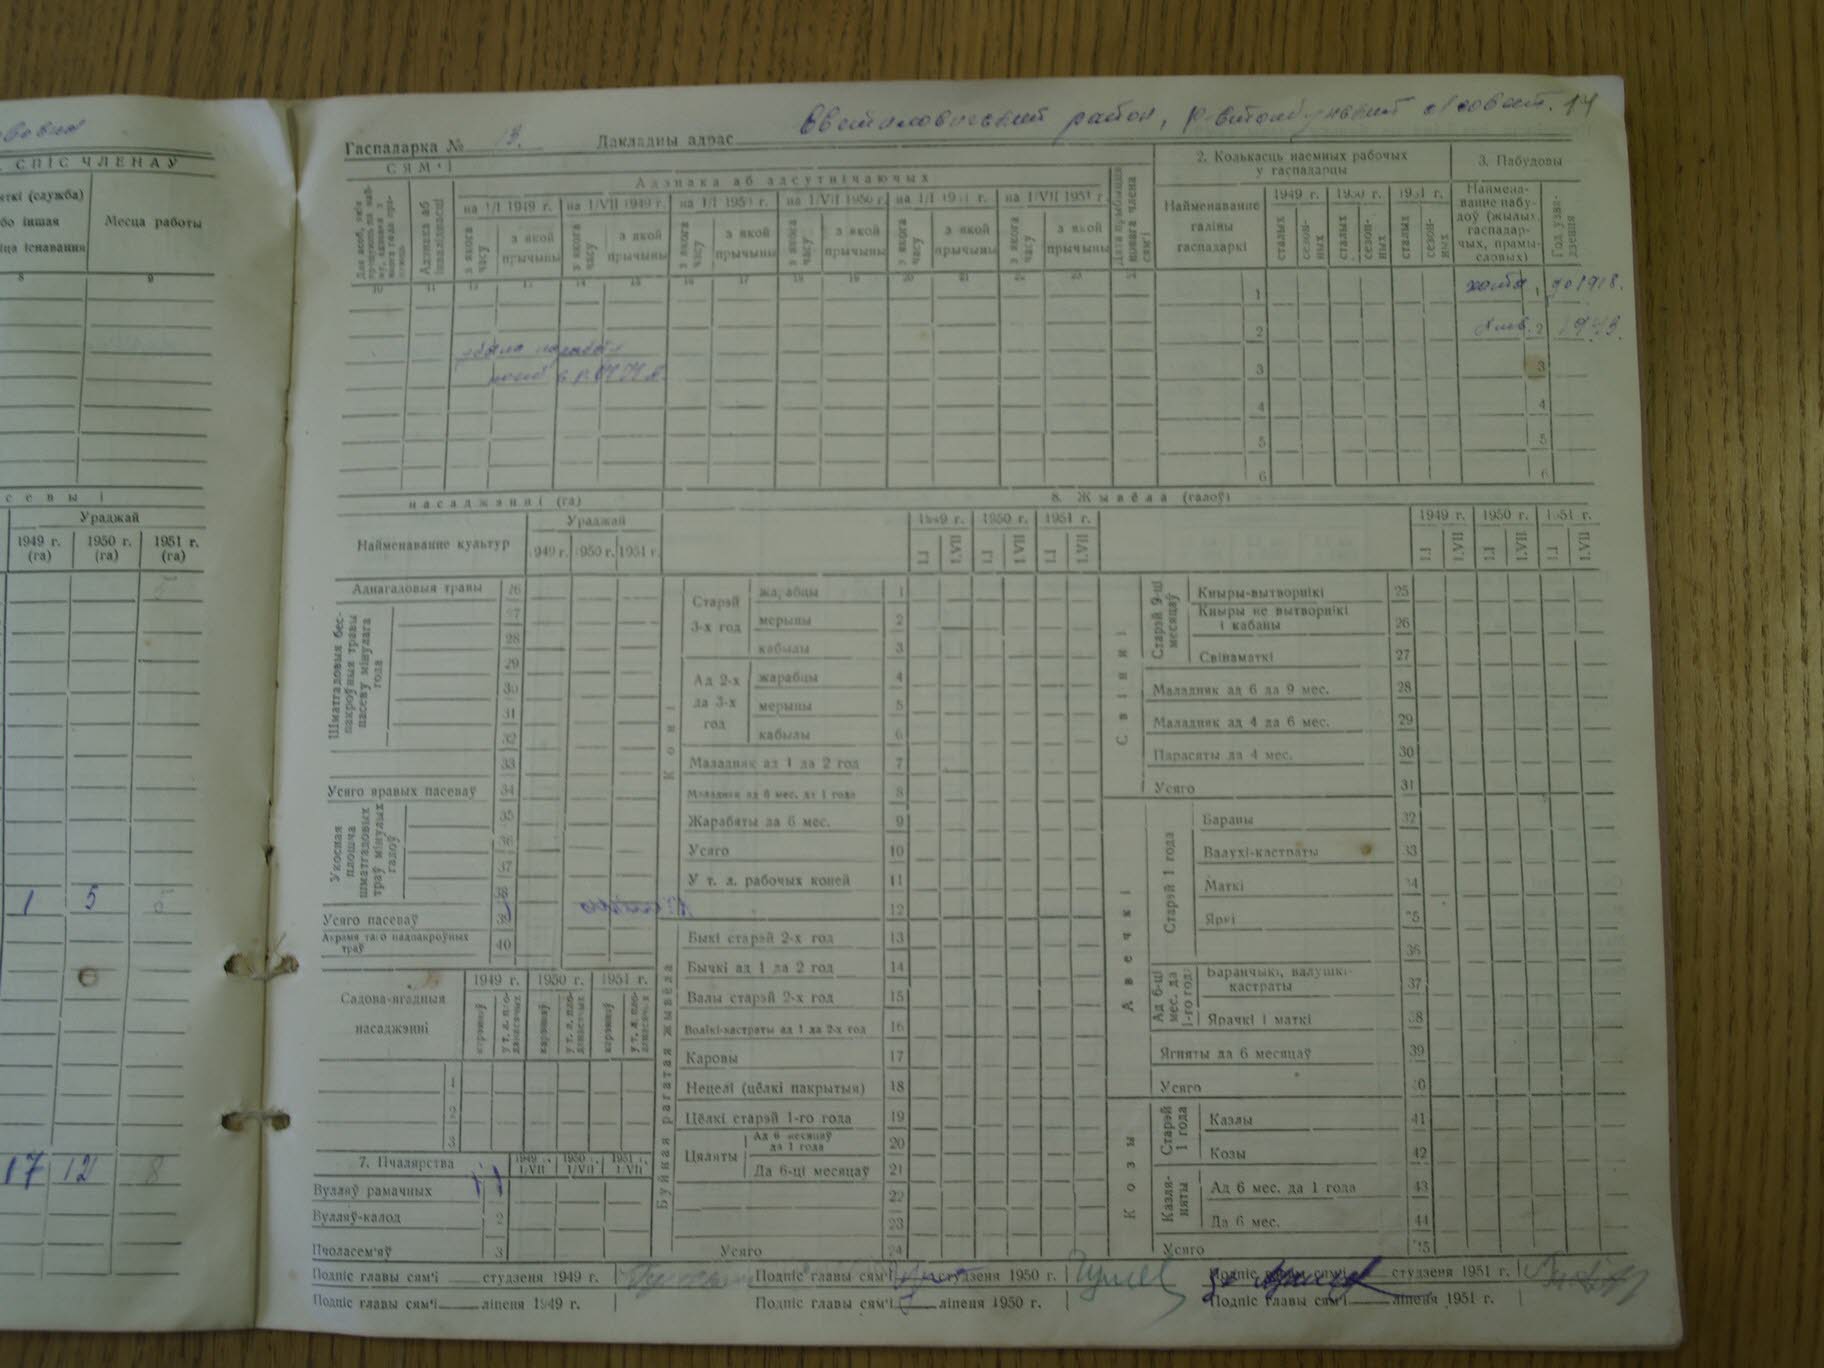 СПІС ЧЛЕНАЎ
(служба)
або іншая
Месца работы
існавання
8 9
Ураджай
1949 г. (га) 1950 г. (га) 1951 г. (га)
1 5
17 12 8
Гаспадарка № 13. Дакладны адрас район, 14
СЯМ'І
Адзнака аб адсутнічаючых
2. Колькасць наемных рабочых у гаспадарцы
3. Пабудовы
Адзнака аб інваліднасці
на 1/I 1949 г. на 1/VII 1949 г. на 1/I 1950 г. на 1/VII 1950 г. на 1/I 1951 г. на 1/VII 1951 г.
з якога часу з якой прычыны з якога часу з якой прычыны з якога часу з якой прычыны з якога часу з якой прычыны з якога часу з якой прычыны з якога часу з якой прычыны
Дата прыбыцця новага члена сям'і
Найменаванне галіны гаспадаркі
1949 г. 1950 г. 1951 г.
сталых сезонных сталых сезонных сталых сезонных
Найменаванне пабудоў (жылых, гаспадарчых, прамысловых)
Год узвядзення
10 11 12 13 14 15 16 17 18 19 20 21 22 23
1 хата 1 до 1918.
2 хлев. 2 1943.
3 3
4 4
5 5
6 6
насаджэнні (га)
8. Жывёла (галоў)
Найменаванне культур
Ураджай
1949 г. 1950 г. 1951 г.
1949 г. 1950 г. 1951 г.
1.I 1.VII 1.I 1.VII 1.I 1.VII
1949 г. 1950 г. 1951 г.
1.I 1.VII 1.I 1.VII 1.I 1.VII
Аднагадовыя травы 26
Шматгадовыя беспакроўныя травы пасеву мінулага года
27
28
29
30
31
32
33
Усяго яравых пасеваў 34
Укосная плошча шматгадовых траў мінулых гадоў
35
36
37
38
Усяго пасеваў 39
Акрамя таго падпакроўных траў 40
Садова-ягадныя насаджэнні
1949 г. 1950 г. 1951 г.
1
2
3
7. Пчалярства
1949 г. 1.VII 1950 г. 1/VII 1951 г. 1.VII
Вулляў рамачных 1
Вулляў-калод 2
Пчоласем'яў 3
Коні
Старэй 3-х год
жарабцы 1
мерыны 2
кабылы 3
Ад 2-х да 3-х год
жарабцы 4
мерыны 5
кабылы 6
Маладняк ад 1 да 2 год 7
Маладняк ад 6 мес. да 1 года 8
Жарабяты да 6 мес. 9
Усяго 10
У т. л. рабочых коней 11
12
Буйная рагатая жывёла
Быкі старэй 2-х год 13
Бычкі ад 1 да 2 год 14
Валы старэй 2-х год 15
Волікі-кастраты ад 1 да 2-х год 16
Каровы 17
Нецелі (цёлкі пакрытыя) 18
Цёлкі старэй 1-го года 19
Цяляты
Ад 6 месяцаў да 1 года 20
Да 6-ці месяцаў 21
22
23
Усяго 24
Свінні
Старэй 9-ці месяцаў
Кныры-вытворнікі 25
Кныры не вытворнікі і кабаны 26
Свінаматкі 27
Маладняк ад 6 да 9 мес. 28
Маладняк ад 4 да 6 мес. 29
Парасяты да 4 мес. 30
Усяго 31
Авечкі
Старэй 1 года
Бараны 32
Валухі-кастраты 33
Маткі 34
Яркі 35
36
Ад 6-ці мес. да 1-го года
Баранчыкі, валушкі-кастраты 37
Ярачкі і маткі 38
Ягняты да 6 месяцаў 39
Усяго 40
Козы
Старэй 1 года
Казлы 41
Козы 42
Казляняты
Ад 6 мес. да 1 года 43
Да 6 мес. 44
Усяго 45
Подпіс главы сям'і студзеня 1949 г. Подпіс главы сям'і студзеня 1950 г. Подпіс главы сям'і студзеня 1951 г.
Подпіс главы сям'і ліпеня 1949 г. Подпіс главы сям'і ліпеня 1950 г. Подпіс главы сям'і ліпеня 1951 г.